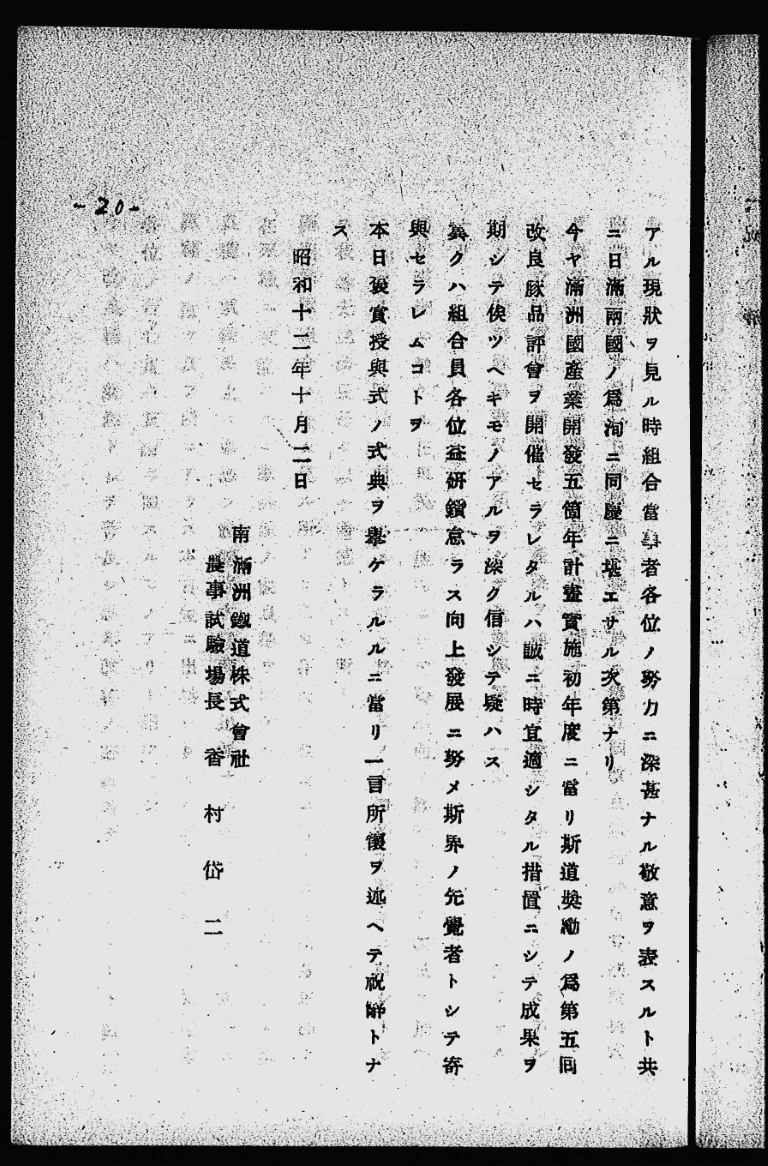 -20-
アル現狀ヲ見ル時組合當事者各位ノ努力ニ深甚ナル敬意ヲ表スルト共
ニ日滿兩國ノ爲洵ニ同慶ニ堪エサル次第ナリ
今ヤ滿洲國産業開發五箇年計畫實施初年度ニ當リ斯道奬勵ノ爲第五回
改良豚品評會ヲ開催セラレタルハ誠ニ時宜適シタル措置ニシテ成果ヲ
期シテ俟ツヘキモノアルヲ深ク信シテ疑ハス
冀クハ組合員各位益硏鑽怠ラス向上發展ニ努メ斯界ノ先覺者トシテ寄
與セラレムコトヲ
本日褒賞授與式ノ式典ヲ擧ケラルルニ當リ一言所懷ヲ述ヘテ祝辭トナ
ス
昭和十二年十月二日
南滿洲鐵道株式會社
農事試驗場長 香村岱二